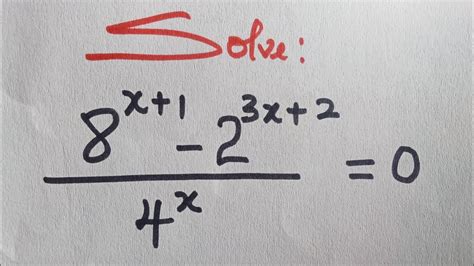 Solve:
8^{x+1} - 2^{3x+2}
4^x
= 0